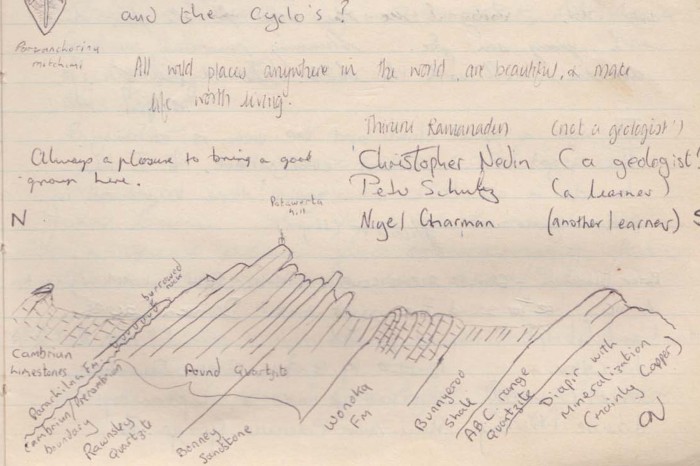 and the Cyclo's?
Parvancorina
mitchimi
All wild places anywhere in the world, are beautiful, & make
life worth living.
(not a geologist!)
Always a pleasure to bring a good
group here.
'Christopher Nedin (a geologist!
(a learner)
Nigel Charman (another learner) S
N
Patawarta
hill
burrowed
Cambrian
limestones
Parachilna Fm
Cambrian/Precambrian
boundary
Rawnsley
Quartzite
Pound Quartzite
Bonney
Sandstone
Wonoka
Fm
Bunnyeroo
Shale
A.B.C. range
Quartzite
Diapir with
Mineralization
(mainly Copper)